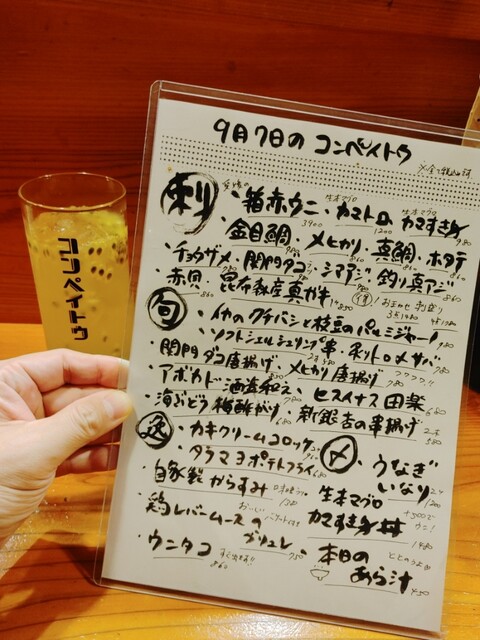 9月7日の コンペイトウ
刺
・箱赤ウニ 3900 ・生本マグロ カマトロ 1200 ・生本マグロ カマすき身 980
・金目鯛 ・メヒカリ ・真鯛 ・ホタテ 860
・チョウザメ ・関門タコ ・シマアジ ・釣り真アジ 860
・赤貝 860 ・昆布森産真ガキ
旬
・イカのクチバシと枝豆のパルミジャーノ
・ソフトシェルシュリンプ串 ・炙りトロメサバ 780
・関門ダコ唐揚げ ・メヒカリ唐揚げ 780
・アボカド酒盗和え ・ヒスイナス田楽 680
・海ぶどう梅酢がけ 680 ・新銀杏の串揚げ 2本 580
・カキクリームコロッケ
・タラマヨポテトフライ
・自家製からすみ
・鶏レバームースのブリュレ 750
・ウニタコ 860
〆
・うなぎいなり 1200
・生本マグロ カマすき身丼 1480
・本日のあら汁 450
コンペイトウ